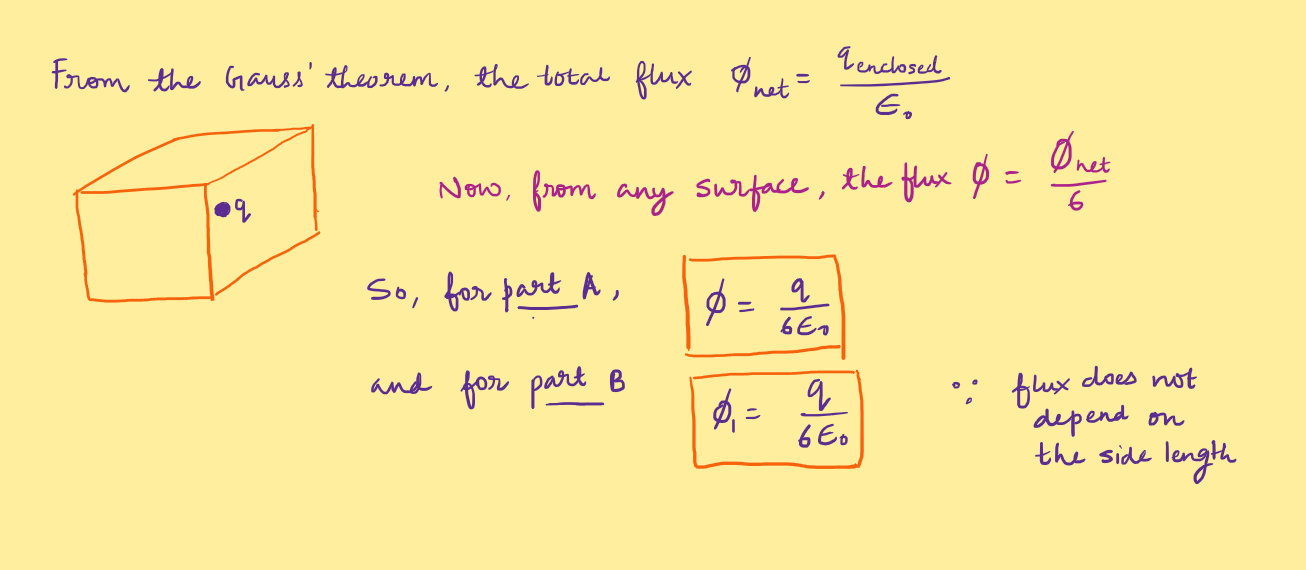 From the Gauss' theorem, the total flux ϕnet = qenclosed/ϵ₀
q
Now, from any surface, the flux ϕ = ϕnet/6
So, for part A, ϕ = q/6ϵ₀
and for part B ϕ₁ = q/6ϵ₀ ∵ flux does not
depend on
the side length